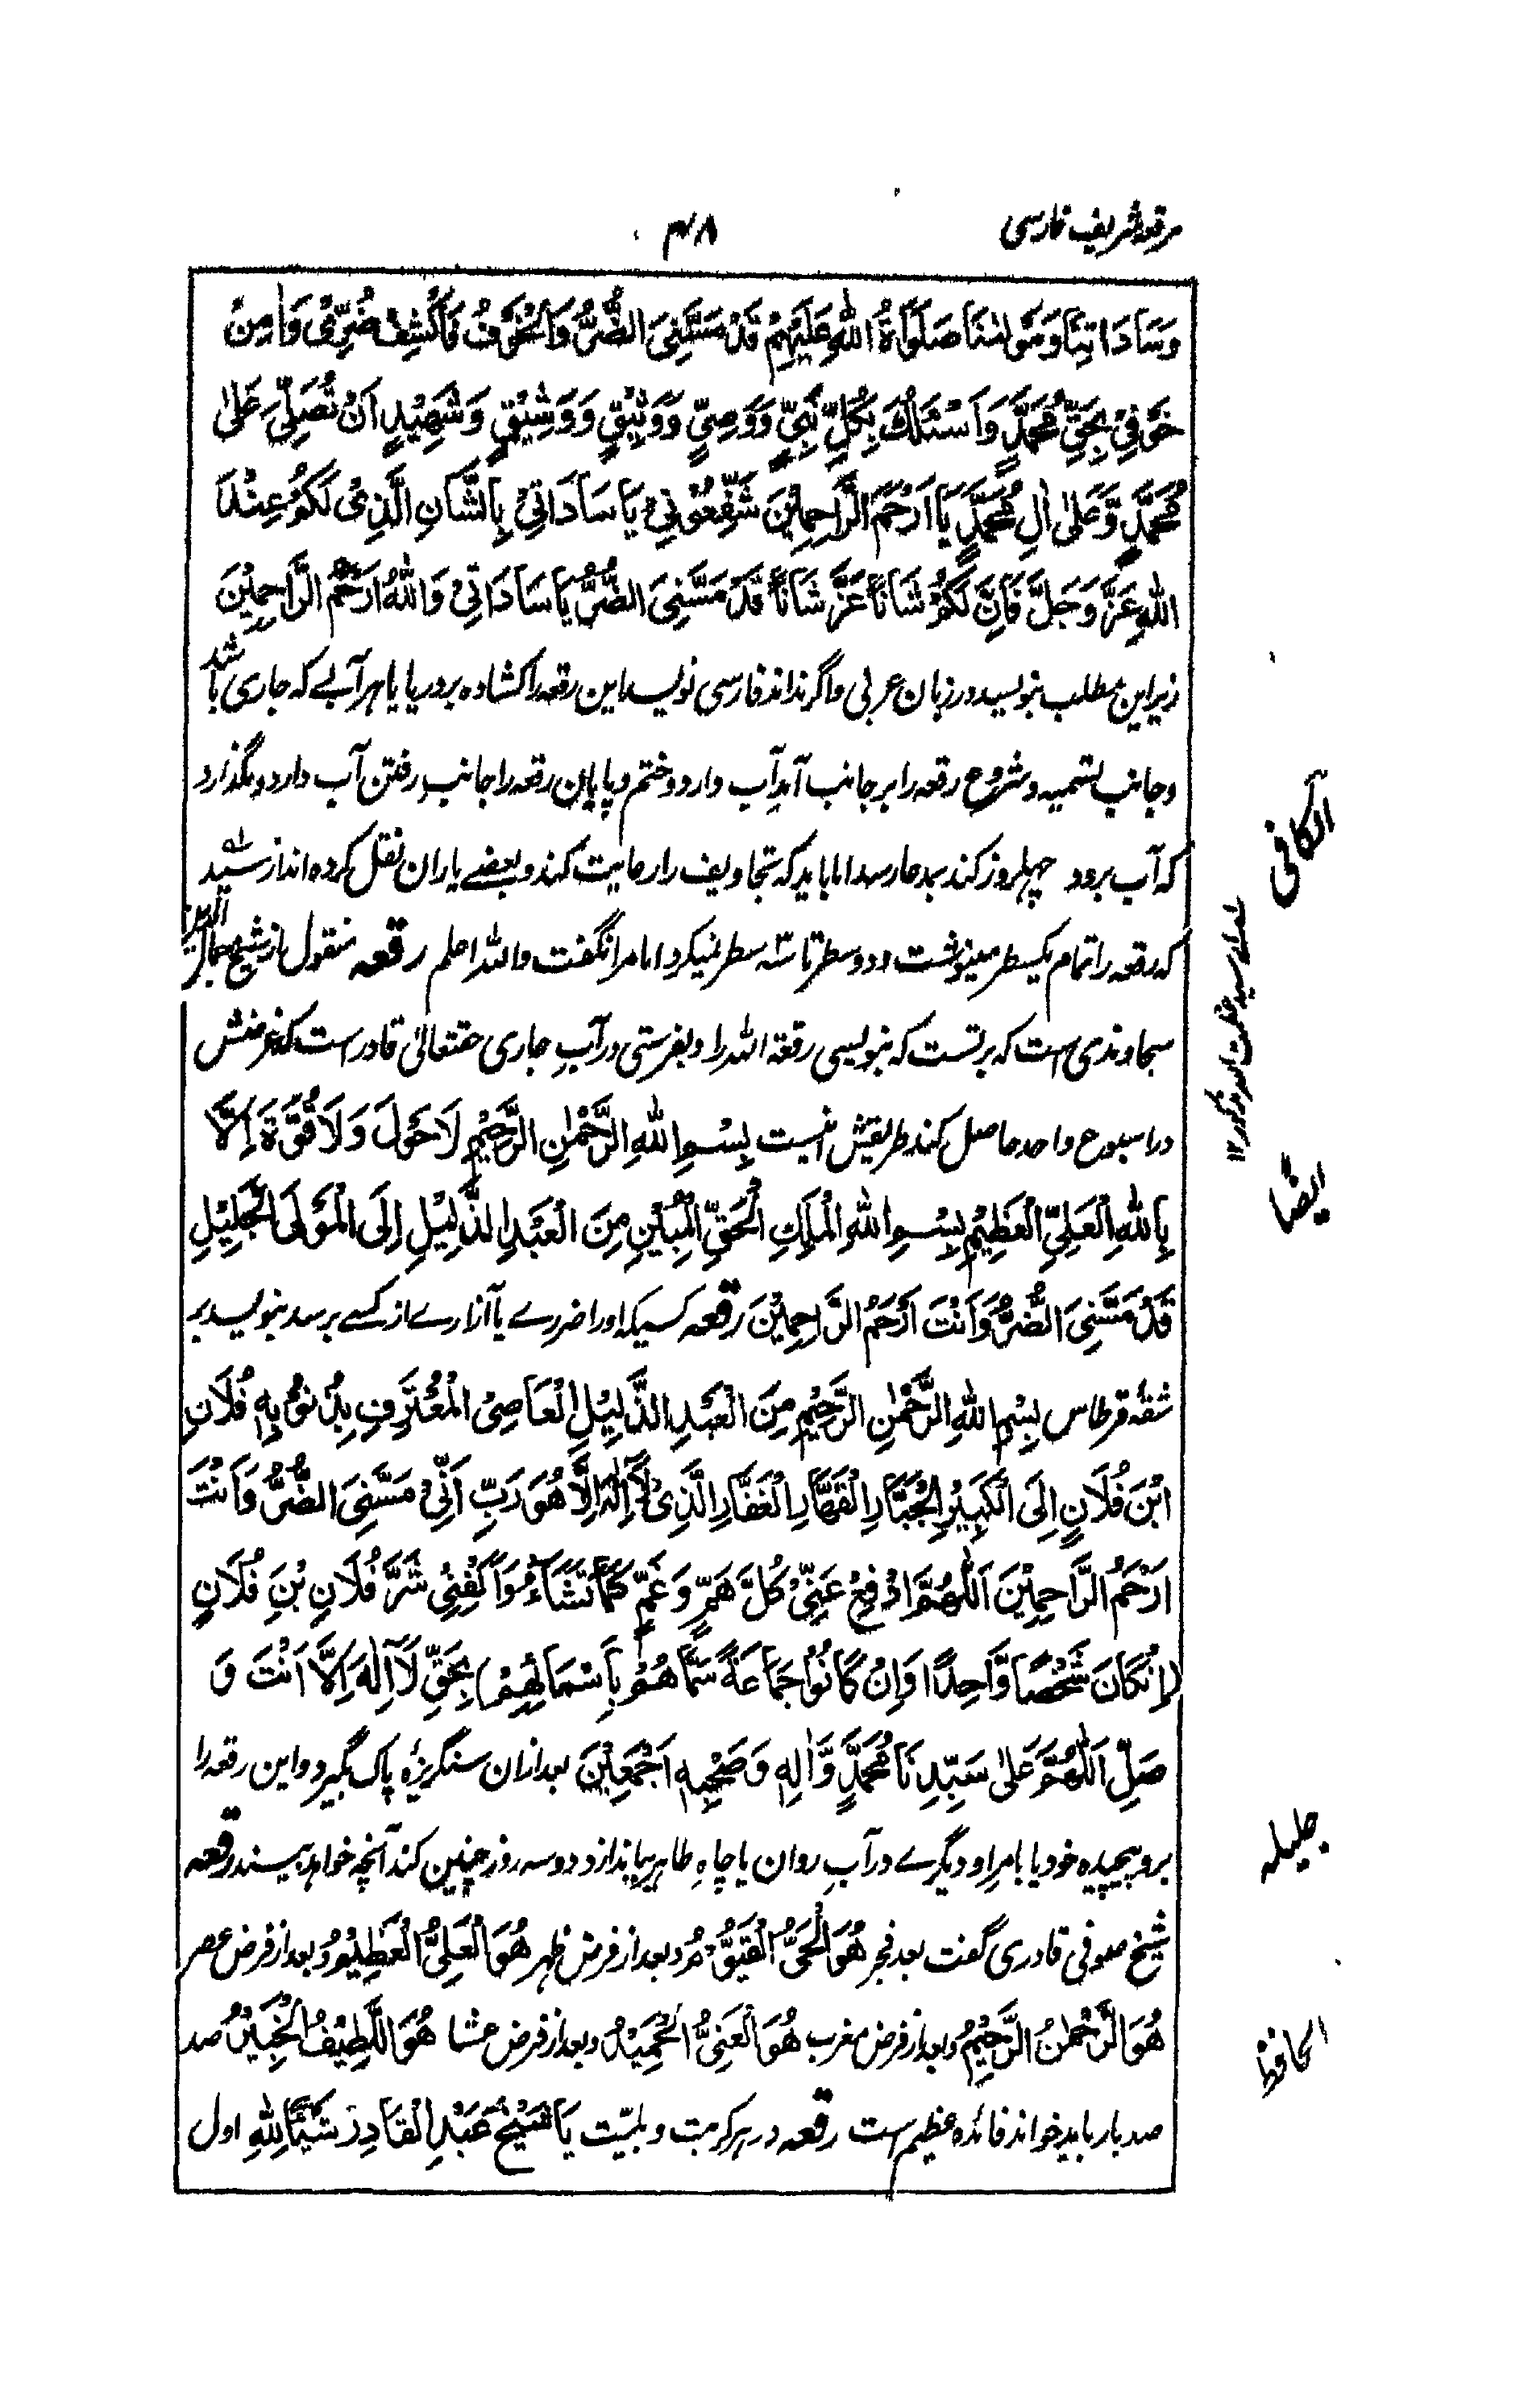 مرقع شریف فارسی
۴۸
وَسَادَاتِنَا وَمَوْلٰنَا صَلَوَاةُ اللّٰهِ عَلَيْهِمْ قَدْ مَسَّنِیَ الضُّرُّ وَالْخَوْفُ فَاكْشِفْ ضُرِّیْ وَاٰمِنْ
خَوْفِیْ بِحَقِّ مُحَمَّدٍ وَاَسْئَلُكَ بِكُلِّ نَبِیٍّ وَوَصِیٍّ وَوَثِيْقٍ وَوَشِيْقٍ وَشَهِيْدٍ اَنْ تُصَلِّیَ عَلٰی
مُحَمَّدٍ وَّعَلٰی اٰلِ مُحَمَّدٍ يَا اَرْحَمَ الرَّاحِمِيْنَ شَفِّعُوْنِیْ يَا سَادَاتِیْ بِالشَّانِ الَّذِیْ لَكُمْ عِنْدَ
اللّٰهِ عَزَّ وَجَلَّ فَاِنَّ لَكُمْ شَانًا عَزَّ شَانًا قَدْ مَسَّنِیَ الضُّرُّ يَا سَادَاتِیْ وَاللّٰهُ اَرْحَمُ الرَّاحِمِيْنَ
زیر این مطلب بنویسد در زبان عربی واگر نداند فارسی نویسد این رقعه را کشاده بر دریا یا هر آبے که جاری باشد
وجانب تسمیه وشروع رقعه را بر جانب آمدِ آب دارد وختم وپایان رقعه را جانب رفتن آب دارد وبگذارد
که آب برود چهلروز کند بمدعا رسد اما باید که تجاویف را رعایت کند وبعضے یاران نقل کرده اند از سید
که رقعه را تمام یکسطر مینوشت ودوسطر تا سه سطر نمیکرد اما مرا نگفت والله اعلم رقعه منقول از شیخ جمال الدین
سجاوندی ست که بر تست که بنویسی رقعة الله را وبفرستی در آبِ جاری حقتعالی قادر است که غرضش
در اسبوع واحد حاصل کند طریقش اینست بِسْمِ اللّٰهِ الرَّحْمٰنِ الرَّحِيْمِ لَا حَوْلَ وَلَا قُوَّةَ اِلَّا
بِاللّٰهِ الْعَلِیِّ الْعَظِيْمِ بِسْمِ اللّٰهِ الْمَلِكِ الْحَقِّ الْمُبِيْنِ مِنَ الْعَبْدِ الذَّلِيْلِ اِلَی الْمَوْلَی الْجَلِيْلِ
قَدْ مَسَّنِیَ الضُّرُّ وَاَنْتَ اَرْحَمُ الرَّاحِمِيْنَ رقعه کسیکه اورا ضررے یا آزارے از کسے برسد بنویسد بر
شقهٔ قرطاس بِسْمِ اللّٰهِ الرَّحْمٰنِ الرَّحِيْمِ مِنَ الْعَبْدِ الذَّلِيْلِ الْعَاصِیْ الْمُعْتَرِفِ بِذُنُوْبِهٖ فُلَانِ
ابْنَ فُلَانٍ اِلَی الْكَبِيْرِ الْجَبَّارِ الْقَهَّارِ الْغَفَّارِ الَّذِیْ لَا اِلٰهَ اِلَّا هُوَ رَبِّ اَنِّیْ مَسَّنِیَ الضُّرُّ وَاَنْتَ
اَرْحَمُ الرَّاحِمِيْنَ اَللّٰهُمَّ ادْفِعْ عَنِّیْ كُلَّ هَمٍّ وَغَمٍّ كَمَا تَشَاءُ وَاكْفِنِیْ شَرَّ فُلَانِ بْنِ فُلَانٍ
(اِنْ كَانَ شَخْصًا وَّاحِدًا وَاِنْ كَانُوْا جَمَاعَةً سَمَّاهُمْ بِاَسْمَائِهِمْ) بِحَقِّ لَا اِلٰهَ اِلَّا اَنْتَ وَ
صَلِّ اَللّٰهُمَّ عَلٰی سَيِّدِنَا مُحَمَّدٍ وَّاٰلِهٖ وَصَحْبِهٖ اَجْمَعِيْنَ بعد ازان سنگریزهٔ پاک بگیرد واین رقعه را
برو پیچیده خود یا بامرِ او دیگرے در آبِ روان یا چاهِ طاهر بیاندازد ودوسه روز چنین کند آنچه خواهد بیند رقعه
شیخ صوفی قادری گفت بعد فجر هُوَ الْحَیُّ الْقَيُّوْمُ وبعد از فرض ظهر هُوَ الْعَلِیُّ الْعَظِيْمُ وبعد از فرض عصر
هُوَ الرَّحْمٰنُ الرَّحِيْمُ وبعد از فرض مغرب هُوَ الْغَنِیُّ الْحَمِيْدُ وبعد از فرض عشا هُوَ اللَّطِيْفُ الْخَبِيْرُ صد
صد بار باید خواند فائده عظیم ست رقعه در هر کربت وبلیّت يَا شَيْخُ عَبْدِ الْقَادِرِ شَيْئًا لِلّٰهِ اول
الکافی
ایضًا
جلیله
الحافظ